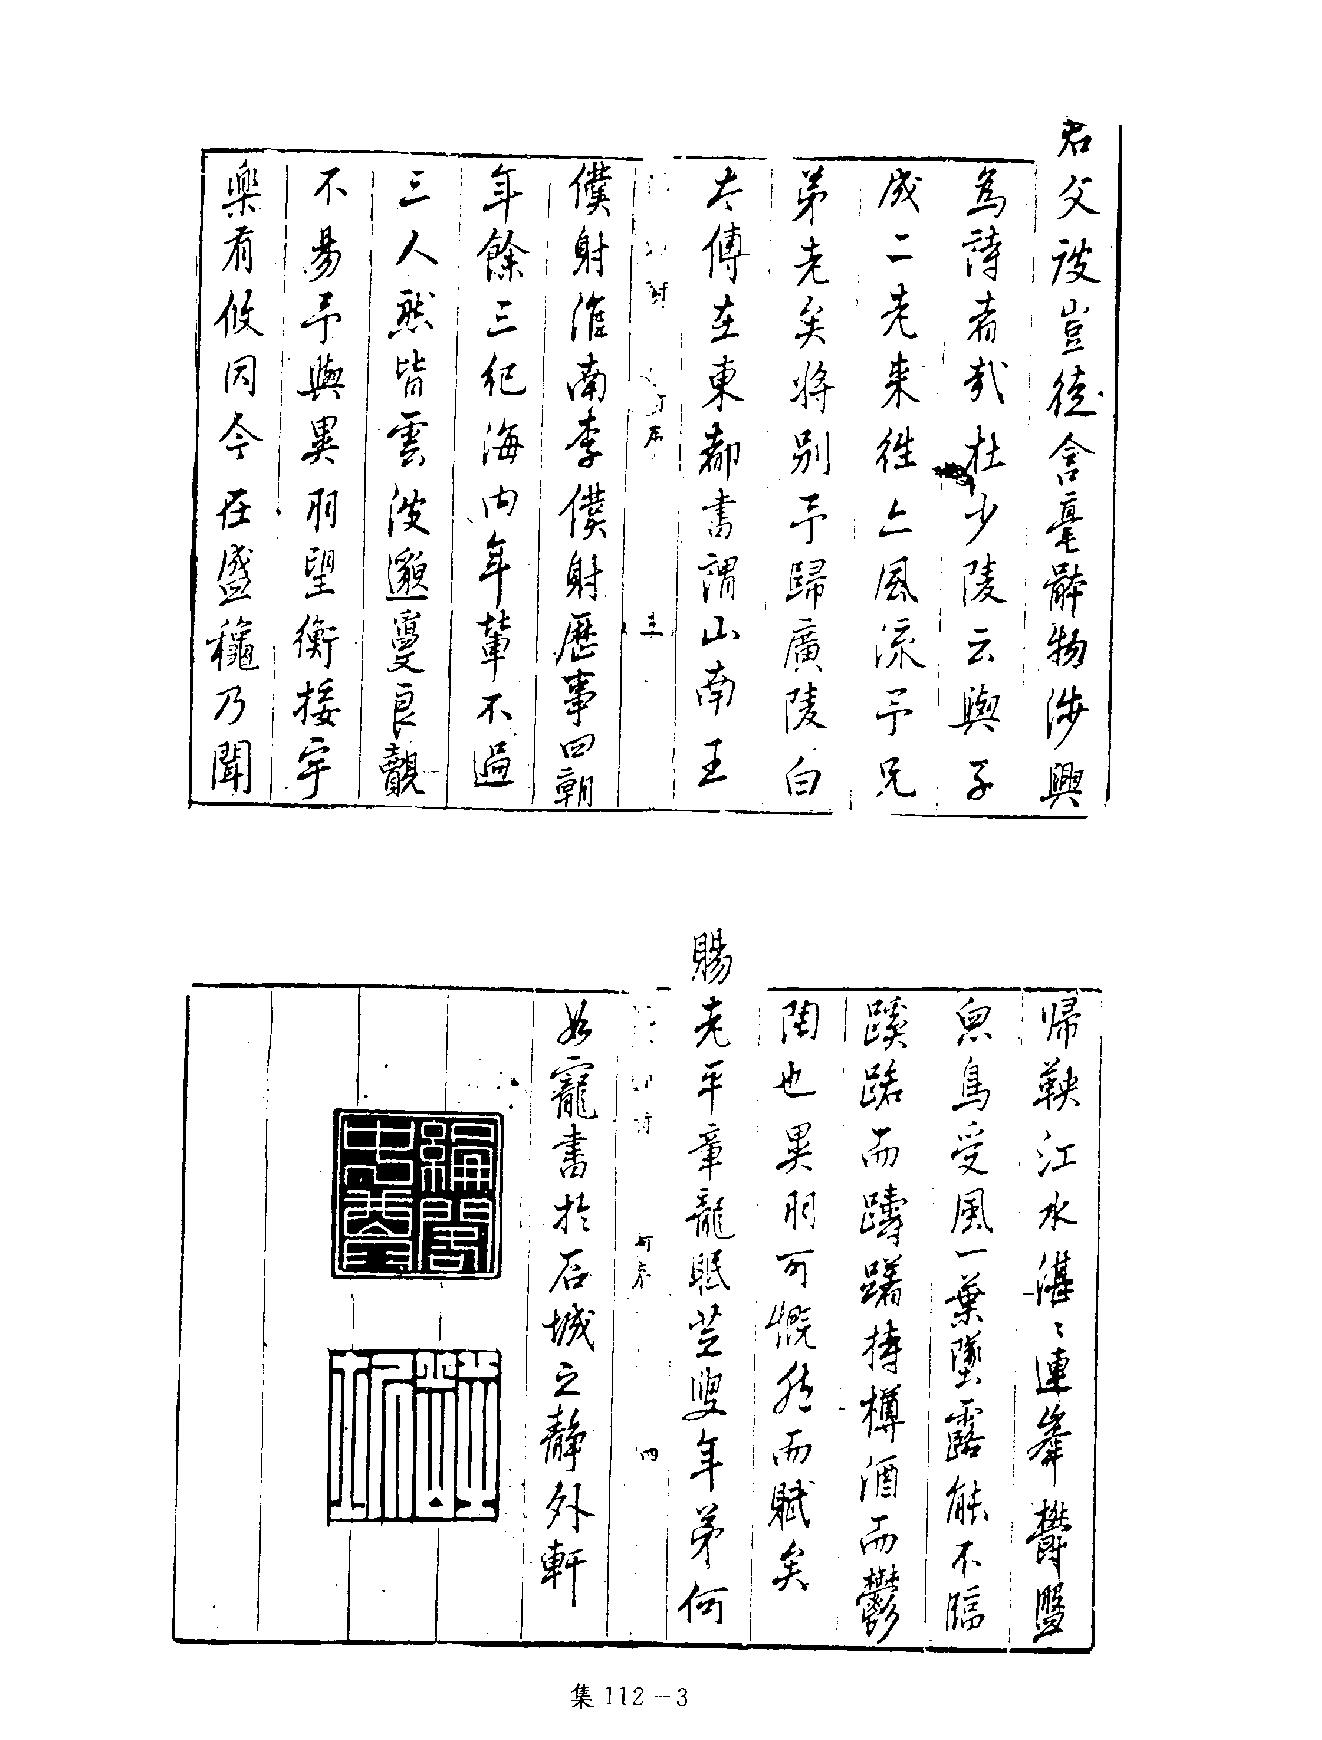 君父波豈徒含毫辭物涉興
為詩者哉杜少陵云與子
成二老來往亦風流予兄
弟老矣將別予歸廣陵白
太傅在東都書謂山南王
僕射淮南李僕射歷事四朝
年餘三紀海內年輩不過
三人然皆雲波邈敻良覿
不易予與異羽望衡接宇
樂有攸同今在盛龝乃聞
歸鞅江水湛〻連峯鬱盤
魚鳥受風一葉墜露能不臨
蹊路而躊躇持樽酒而鬱
陶也異羽可慨然而賦矣
賜老平章龍眠芝叟年弟何
如寵書於石城之靜外軒
集 112－3